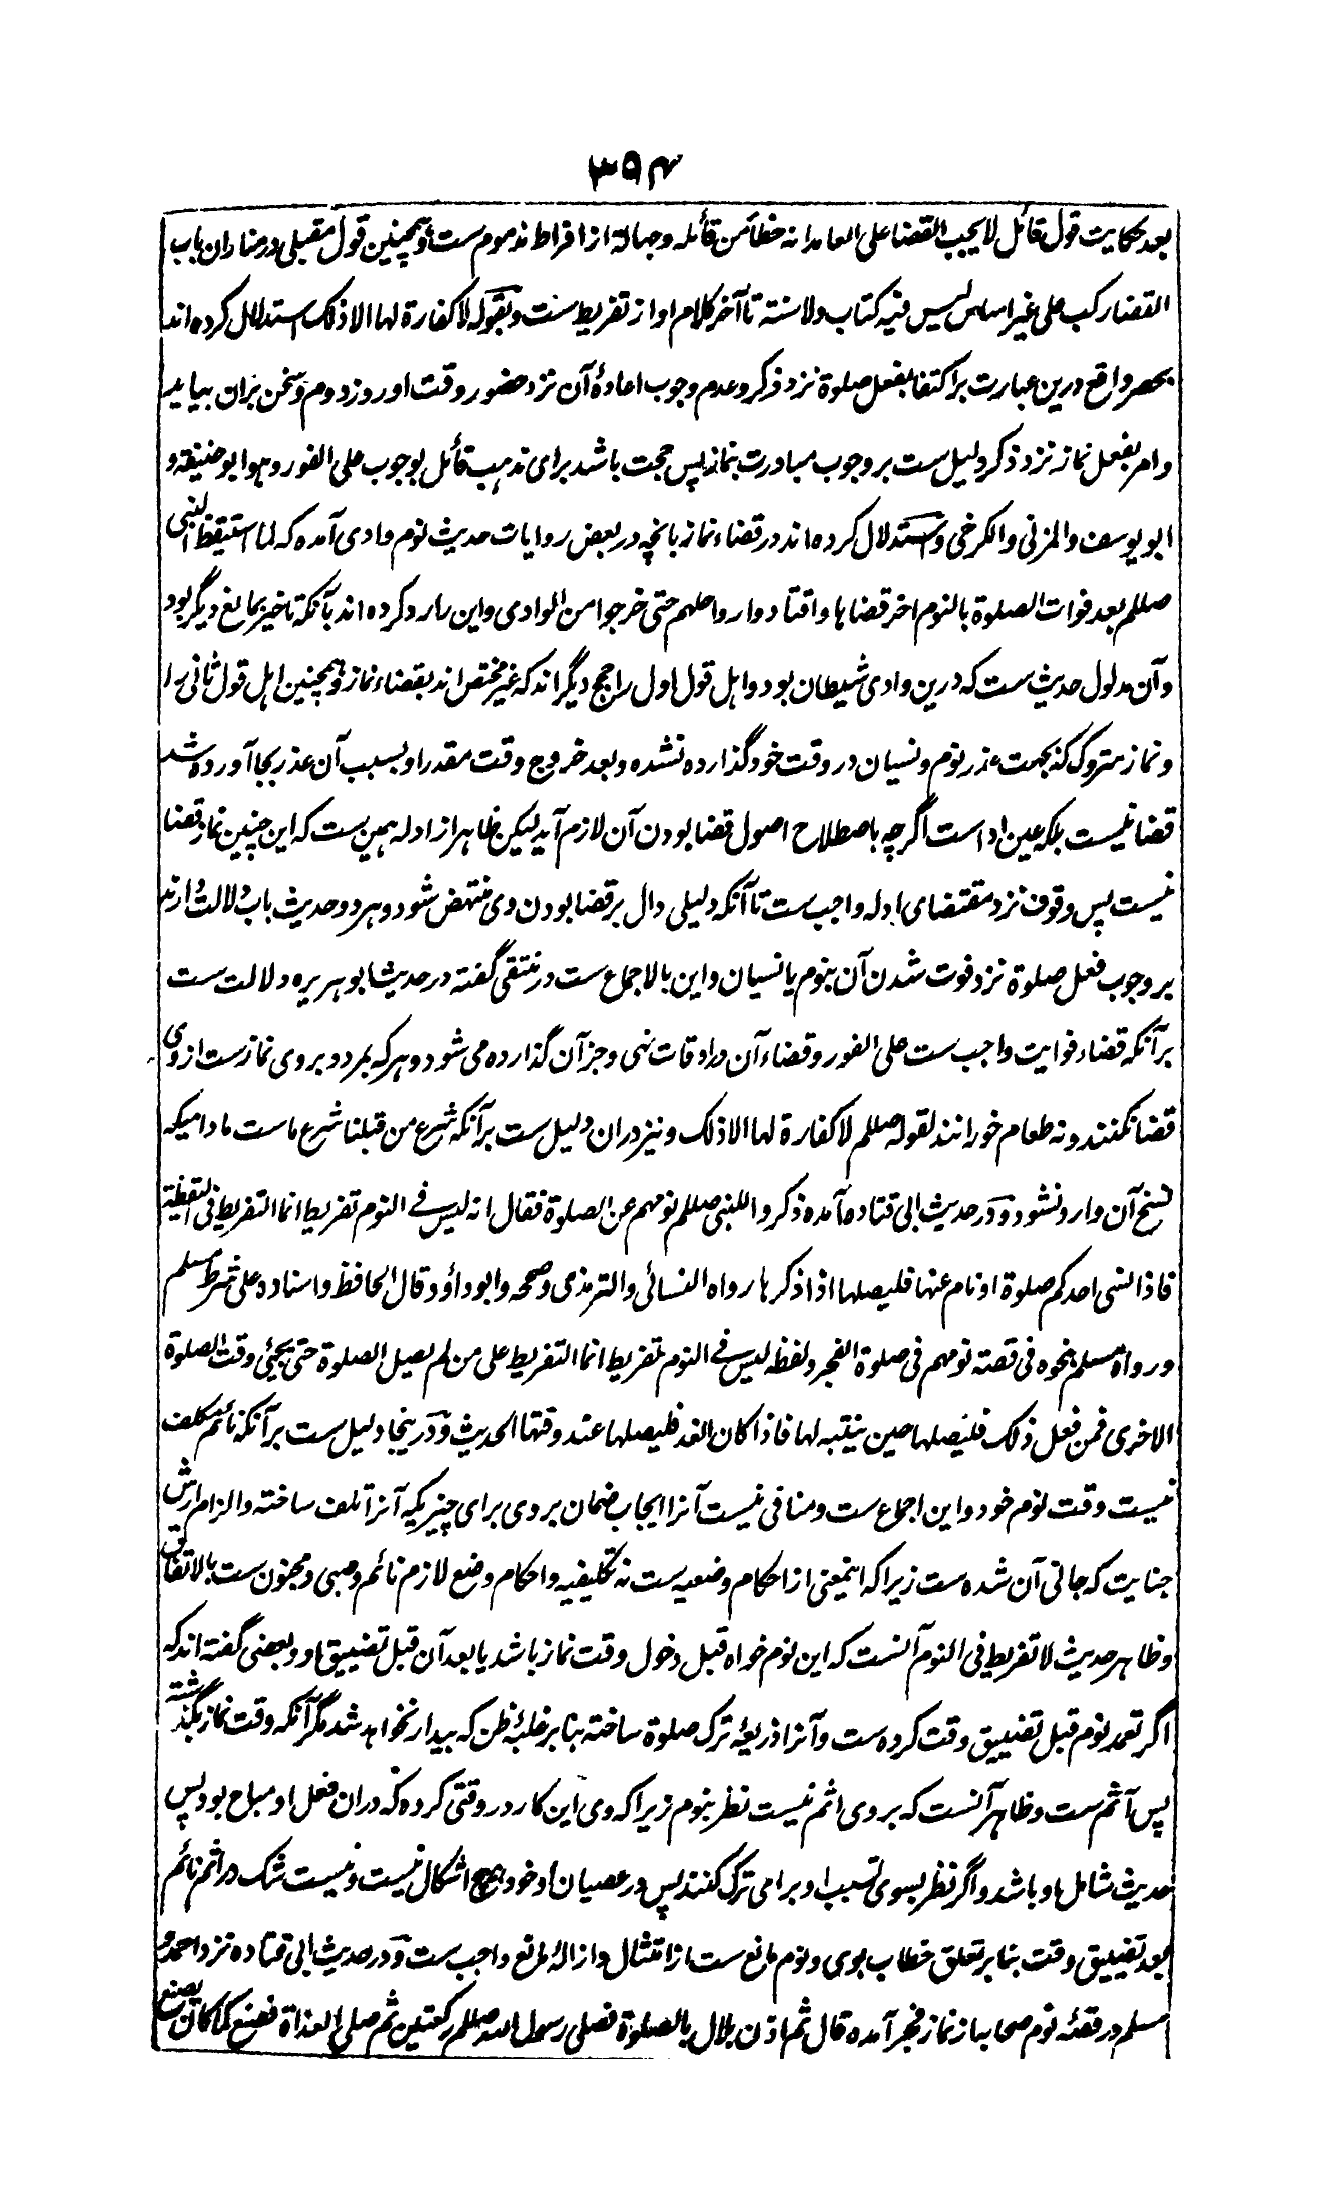 ۳۵۴
بعد حکایت قول قائل لا یجب القضا علی العامد انه خطأ من قائله وجهالة از افراط مذموم ست و همچنین قول مقبلی در منار ان باب
القضا رکب علی غیر اساس لیس فیه کتاب ولا سنة تا آخر کلام او از تفریط ست و بقوله لا کفارة لها الا ذلک استدلال کرده اند
بحصر واقع درین عبارت بر اکتفا بفعل صلوة نزد ذکر و عدم وجوب اعادۀ آن نزد حضور وقت او روز دوم و سخن بران بیاید
و امر بفعل نماز نزد ذکر دلیل ست بر وجوب مبادرت بنماز پس حجت باشد برای مذهب قائل بوجوب علی الفور وهو ابو حنیفه و
ابو یوسف والمزنی والکرخی و استدلال کرده اند در قضاء نماز بانچه در بعض روایات حدیث نوم وادی آمده که لما استیقظ النبی
صللم بعد فوات الصلوة بالنوم اخر قضاها واقتادوا رواحلهم حتی خرجوا من الوادی و این را رد کرده اند بآنکه تاخیر بمانع دیگر بود
و آن مدلول حدیث ست که درین وادی شیطان بود و اهل قول اول را حجج دیگر اند که غیر مختص اند بقضاء نماز و همچنین اهل قول ثانی را
و نماز متروک که بجهت عذر نوم و نسیان در وقت خود گذارده نشده و بعد خروج وقت مقدر او بسبب آن عذر بجا آورده شد
قضا نیست بلکه عین ادا است اگرچه باصطلاح اصول قضا بودن آن لازم آید لیکن ظاهر از ادله همین ست که این چنین نماز قضا
نیست پس وقوف نزد مقتضای ادله واجب ست تا آنکه دلیلی دال بر قضا بودن وی منتهض شود و هر دو حدیث باب دلالت دارند
بر وجوب فعل صلوة نزد فوت شدن آن بنوم یا نسیان و این بالاجماع ست در منتقی گفته در حدیث ابو هریره دلالت ست
بر آنکه قضاء فوایت واجب ست علی الفور و قضاء آن در اوقات نهی و جز آن گذارده می شود و هر که بمرد و بر وی نماز ست از وی
قضا نکنند و نه طعام خورانند لقوله صللم لا کفارة لها الا ذلک و نیز دران دلیل ست بر آنکه شرع من قبلنا شرع ما ست مادامیکه
نسخ آن وارد نشود و در حدیث ابی قتاده آمده ذکروا للنبی صللم نومهم عن الصلوة فقال انه لیس فی النوم تفریط انما التفریط فی الیقظة
فاذا نسی احدکم صلوة او نام عنها فلیصلها اذا ذکرها رواه النسائی والترمذی وصححه وابو داؤد وقال الحافظ واسناده علی شرط مسلم
ورواه مسلم بنحوه فی قصة نومهم فی صلوة الفجر ولفظه لیس فی النوم تفریط انما التفریط علی من لم یصل الصلوة حتی یجئ وقت الصلوة
الاخری فمن فعل ذلک فلیصلها حین ینتبه لها فاذا کان الغد فلیصلها عند وقتها الحدیث و درینجا دلیل ست بر آنکه نائم مکلف
نیست وقت نوم خود و این اجماع ست و منافی نیست آنرا ایجاب ضمان بر وی برای چیزیکه آنرا تلف ساخته و الزام ارش
جنایت که جانی آن شده ست زیرا که اینمعنی از احکام وضعیه ست نه تکلیفیه و احکام وضع لازم نائم و صبی و مجنون ست بالاتفاق
و ظاهر حدیث لا تفریط فی النوم آنست که این نوم خواه قبل دخول وقت نماز باشد یا بعد آن قبل تضییق او و بعضی گفته اند که
اگر تعمد نوم قبل تضییق وقت کرده ست و آنرا ذریعۀ ترک صلوة ساخته بنابر غلبۀ ظن که بیدار نخواهد شد مگر آنکه وقت نماز بگذشته
پس آثم ست و ظاهر آنست که بر وی اثم نیست نظر بنوم زیرا که وی این کار در وقتی کرده که دران فعل او مباح بود پس
حدیث شامل او باشد و اگر نظر بسوی تسبب او برای ترک کنند پس در عصیان او خود هیچ اشکال نیست و نیست شک در اثم نائم
بعد تضییق وقت بنابر تعلق خطاب بوی و نوم مانع ست از امتثال و ازالۀ مانع واجب ست و در حدیث ابی قتاده نزد احمد و
مسلم در قصۀ نوم صحابه از نماز فجر آمده قال ثم اذن بلال بالصلوة فصلی رسول الله صللم رکعتین ثم صلی الغداة فصنع کما کان یصنع